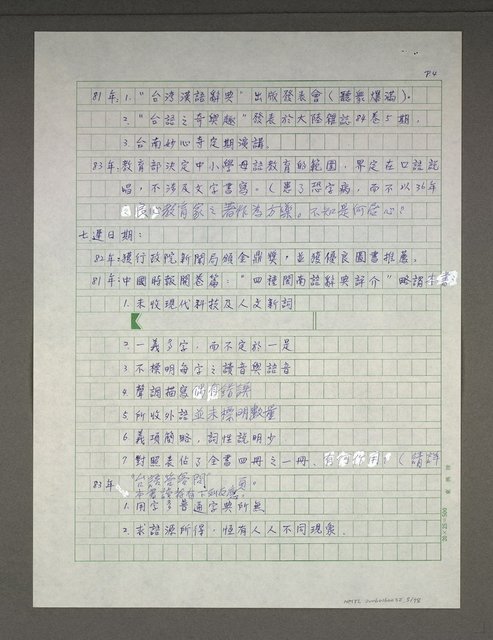 P.4
81年:1."台湾漢語辭典"出版發表會(聽衆爆滿)。
2."台語之奇與趣"發表於大陸雜誌84卷5期,
3 台南妙心寺定期演講。
83年:教育部決定中小學母語教育的範圍,界定在口說說
唱,不涉及文字書寫。(患了恐字病,而不以36年
教育家之著作為方藥。不知是何居心?
七還日期:
82年:獲行政院新聞局頒金鼎獎,並獲優良圖書推薦。
81年:中國時報開卷篇:"四種閩南語辭典評介"略謂
1.未收現代科技及人文新詞
2.一義多字,而不定於一是
3 不標明每字之讀音與語音
4.聲調描寫 錯誤
5 所收外語並未標明數量
6 義項簡略,詞性說明少
7 對照表佔了全書四冊之一冊,(請詳
"台語答客問" 。
83年
1.用字多普通字典所無
2.求語源所得,恒有人人不同現象.
20×25=500